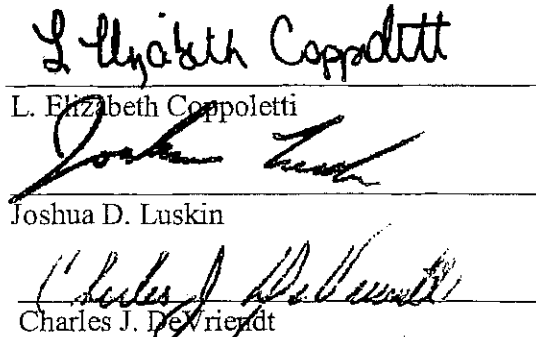 L Elizabeth Coppoletti
L. Elizabeth Coppoletti
Joshua Luskin
Joshua D. Luskin
Charles J DeVriendt
Charles J. DeVriendt